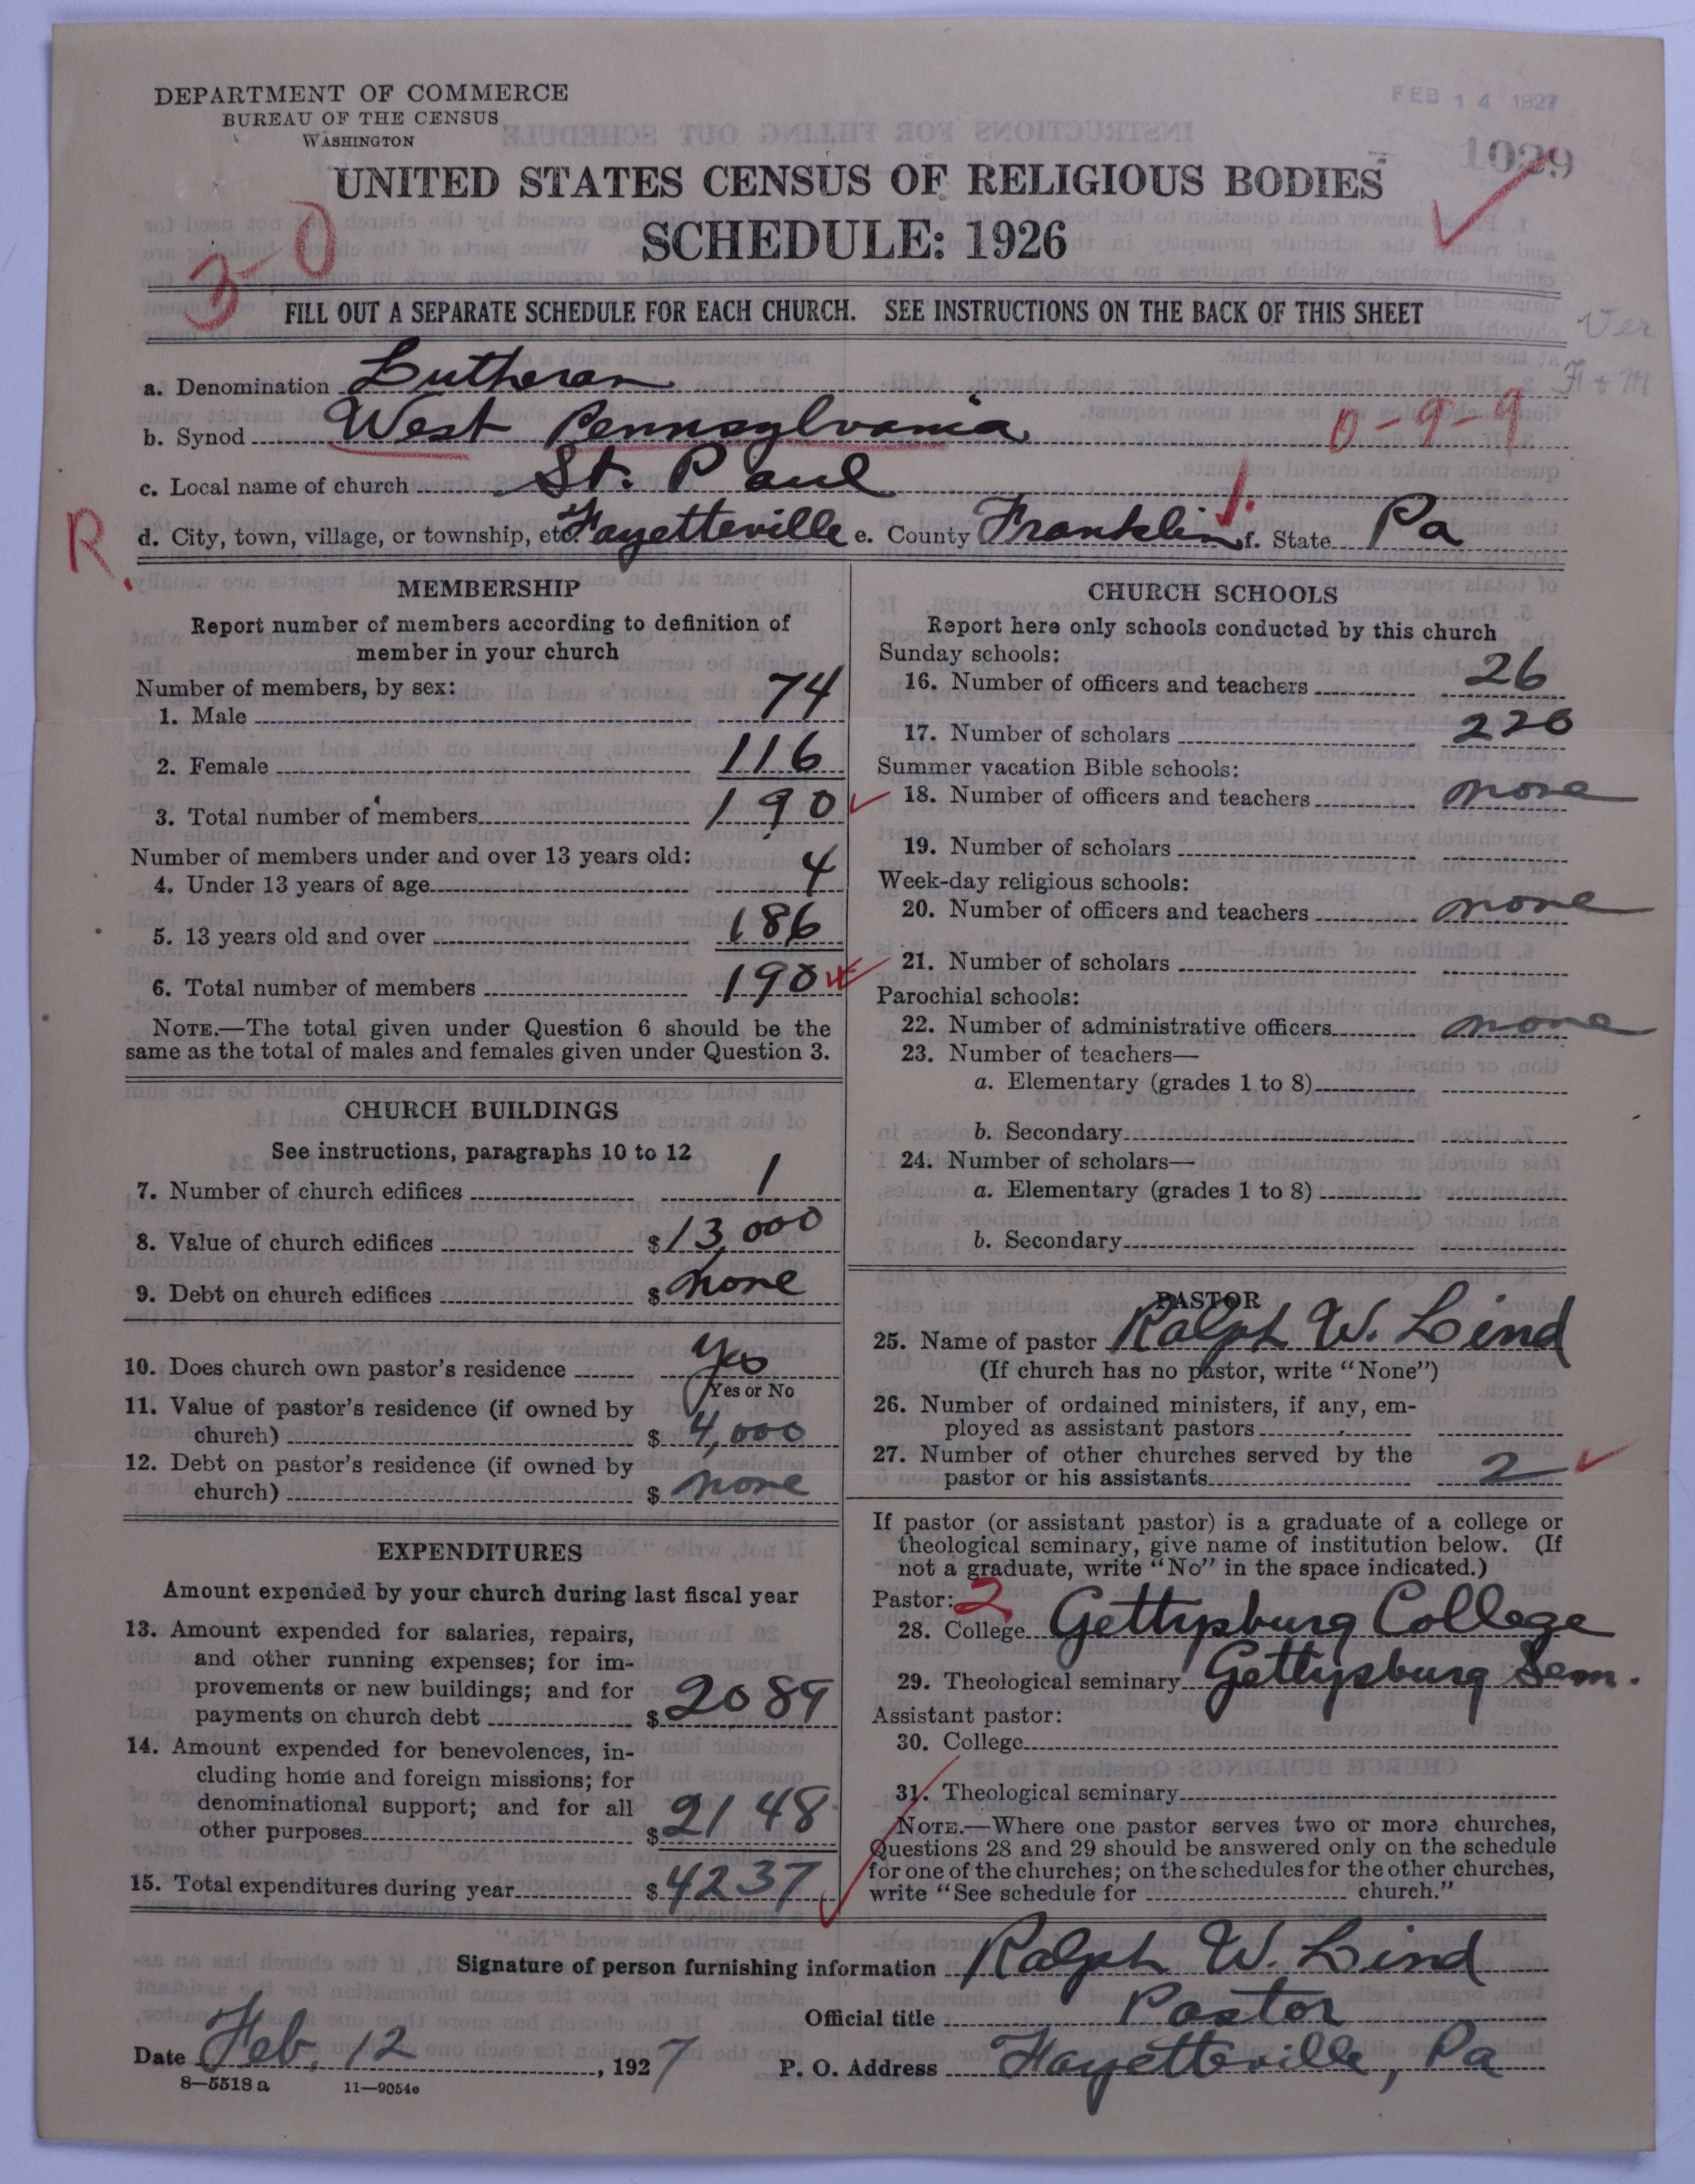 DEPARTMENT OF COMMERCE
BUREAU OF THE CENSUS
WASHINGTON
FEB 14 1927
1029
UNITED STATES CENSUS OF RELIGIOUS BODIES
SCHEDULE: 1926
3-0
FILL OUT A SEPARATE SCHEDULE FOR EACH CHURCH. SEE INSTRUCTIONS ON THE BACK OF THIS SHEET
Ver
H + M
a. Denomination Lutheran
b. Synod West Pennsylvania 0-9-9
c. Local name of church St. Paul
R. d. City, town, village, or township, etc. Fayetteville e. County Franklin f. State Pa
MEMBERSHIP
Report number of members according to definition of
member in your church
Number of members, by sex:
1. Male 74
2. Female 116
3. Total number of members 190
Number of members under and over 13 years old:
4. Under 13 years of age 4
5. 13 years old and over 186
6. Total number of members 190
NOTE.—The total given under Question 6 should be the
same as the total of males and females given under Question 3.
CHURCH BUILDINGS
See instructions, paragraphs 10 to 12
7. Number of church edifices 1
8. Value of church edifices $13,000
9. Debt on church edifices $ none
10. Does church own pastor's residence Yes
Yes or No
11. Value of pastor's residence (if owned by
church) $ 4,000
12. Debt on pastor's residence (if owned by
church) $ none
EXPENDITURES
Amount expended by your church during last fiscal year
13. Amount expended for salaries, repairs,
and other running expenses; for im-
provements or new buildings; and for
payments on church debt $2089
14. Amount expended for benevolences, in-
cluding home and foreign missions; for
denominational support; and for all
other purposes $2148
15. Total expenditures during year $4237
CHURCH SCHOOLS
Report here only schools conducted by this church
Sunday schools:
16. Number of officers and teachers 26
17. Number of scholars 226
Summer vacation Bible schools:
18. Number of officers and teachers none
19. Number of scholars
Week-day religious schools:
20. Number of officers and teachers none
21. Number of scholars
Parochial schools:
22. Number of administrative officers none
23. Number of teachers—
a. Elementary (grades 1 to 8)
b. Secondary
24. Number of scholars—
a. Elementary (grades 1 to 8)
b. Secondary
PASTOR
25. Name of pastor Ralph W. Lind
(If church has no pastor, write "None")
26. Number of ordained ministers, if any, em-
ployed as assistant pastors
27. Number of other churches served by the
pastor or his assistants 2
If pastor (or assistant pastor) is a graduate of a college or
theological seminary, give name of institution below. (If
not a graduate, write "No" in the space indicated.)
Pastor: 2
28. College Gettysburg College
29. Theological seminary Gettysburg Sem.
Assistant pastor:
30. College
31. Theological seminary
NOTE.—Where one pastor serves two or more churches,
Questions 28 and 29 should be answered only on the schedule
for one of the churches; on the schedules for the other churches,
write "See schedule for church."
Signature of person furnishing information Ralph W. Lind
Official title Pastor
Date Feb. 12, 1927 P. O. Address Fayetteville, Pa
8—5518 a 11—9054e